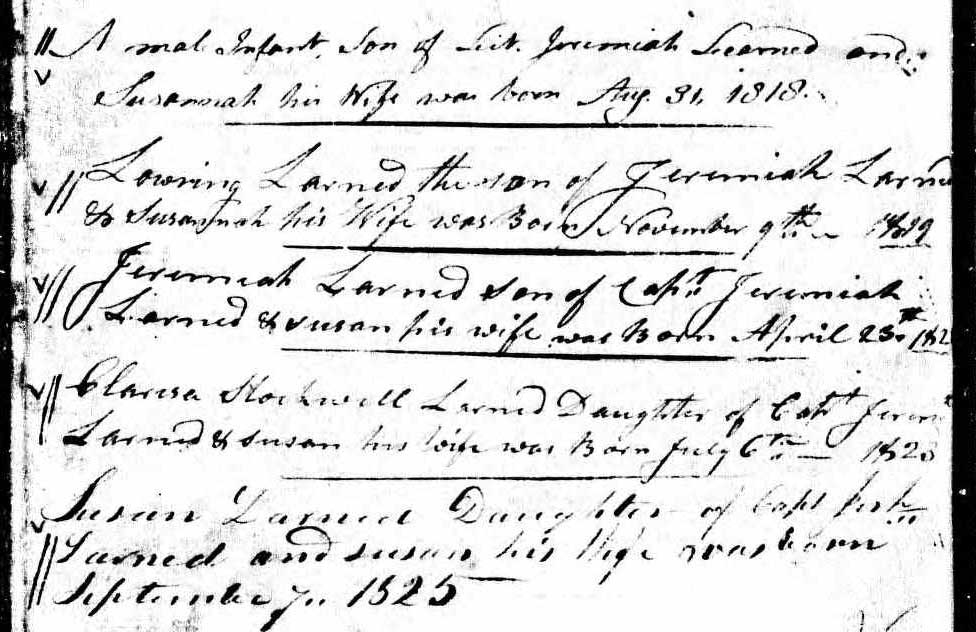 A male Infant Son of Liet. Jeremiah Learned and
Susannah his Wife was born Aug. 31, 1818.
Lowring Larned the son of Jeremiah Larned
& Susannah his Wife was Born November 9th 1819
Jeremiah Larned son of Capt. Jeremiah
Larned & susan his wife was Born April 23d 182
Clarisa Stockwell Larned Daughter of Capt Jerem
Larned & susan his wife was Born July 6th 1823
Susan Larned Daughter of Capt
Larned and susan his Wife was born
September 7th 1825